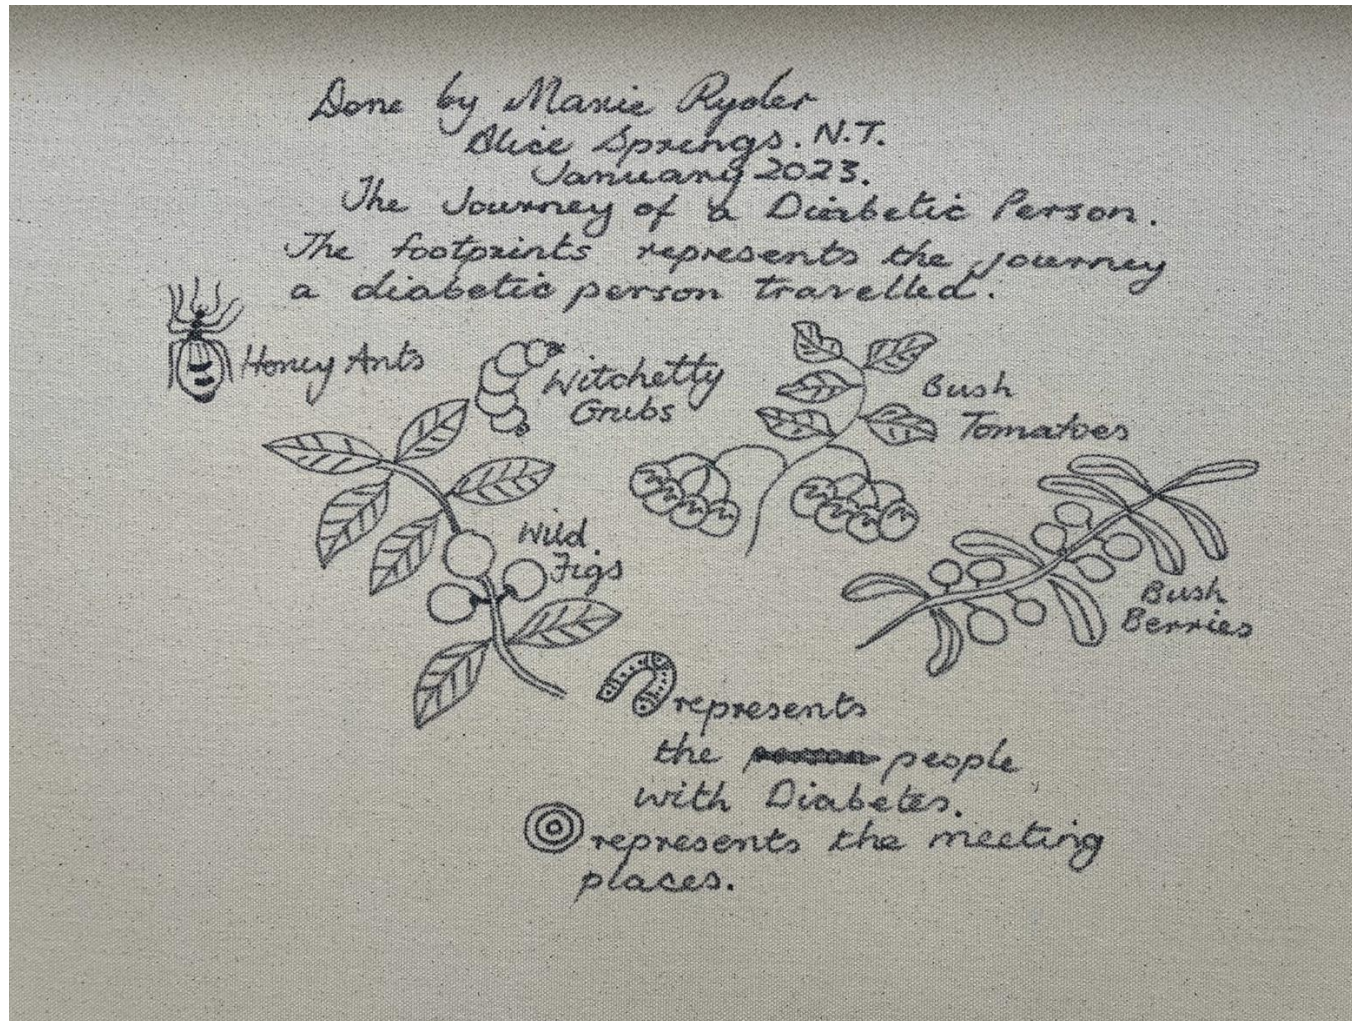 Done by Marie Ryder
Alice Springs. N.T.
January 2023.
The Journey of a Diabetic Person.
The footprints represents the journey
a diabetic person travelled.
Honey Ants
Witchetty
Grubs
Bush
Tomatoes
Wild
Figs
Bush
Berries
represents
the people
with Diabetes.
represents the meeting
places.